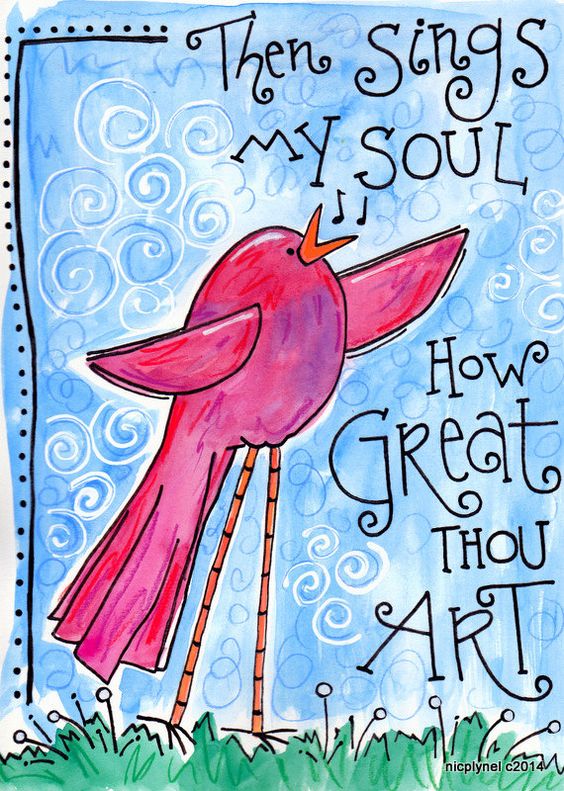 Then Sings
My Soul
How
Great
Thou
Art
nicplynel c2014